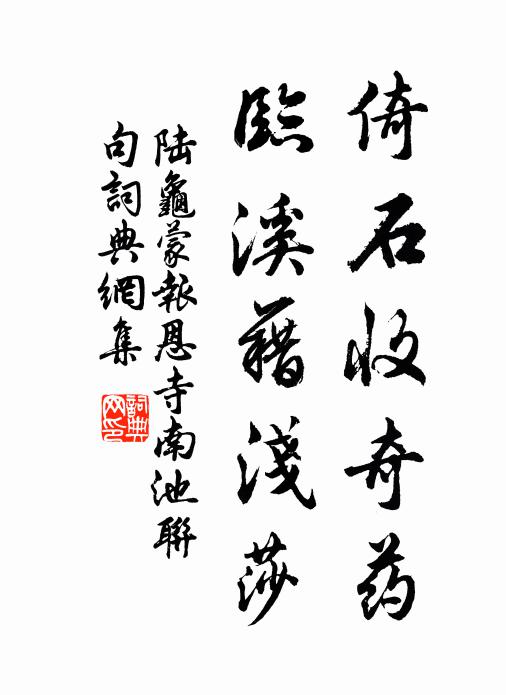 倚石收奇药
臨溪藉淺莎
陆龜蒙報恩寺南池聯
句詞典網集
詞典
网印